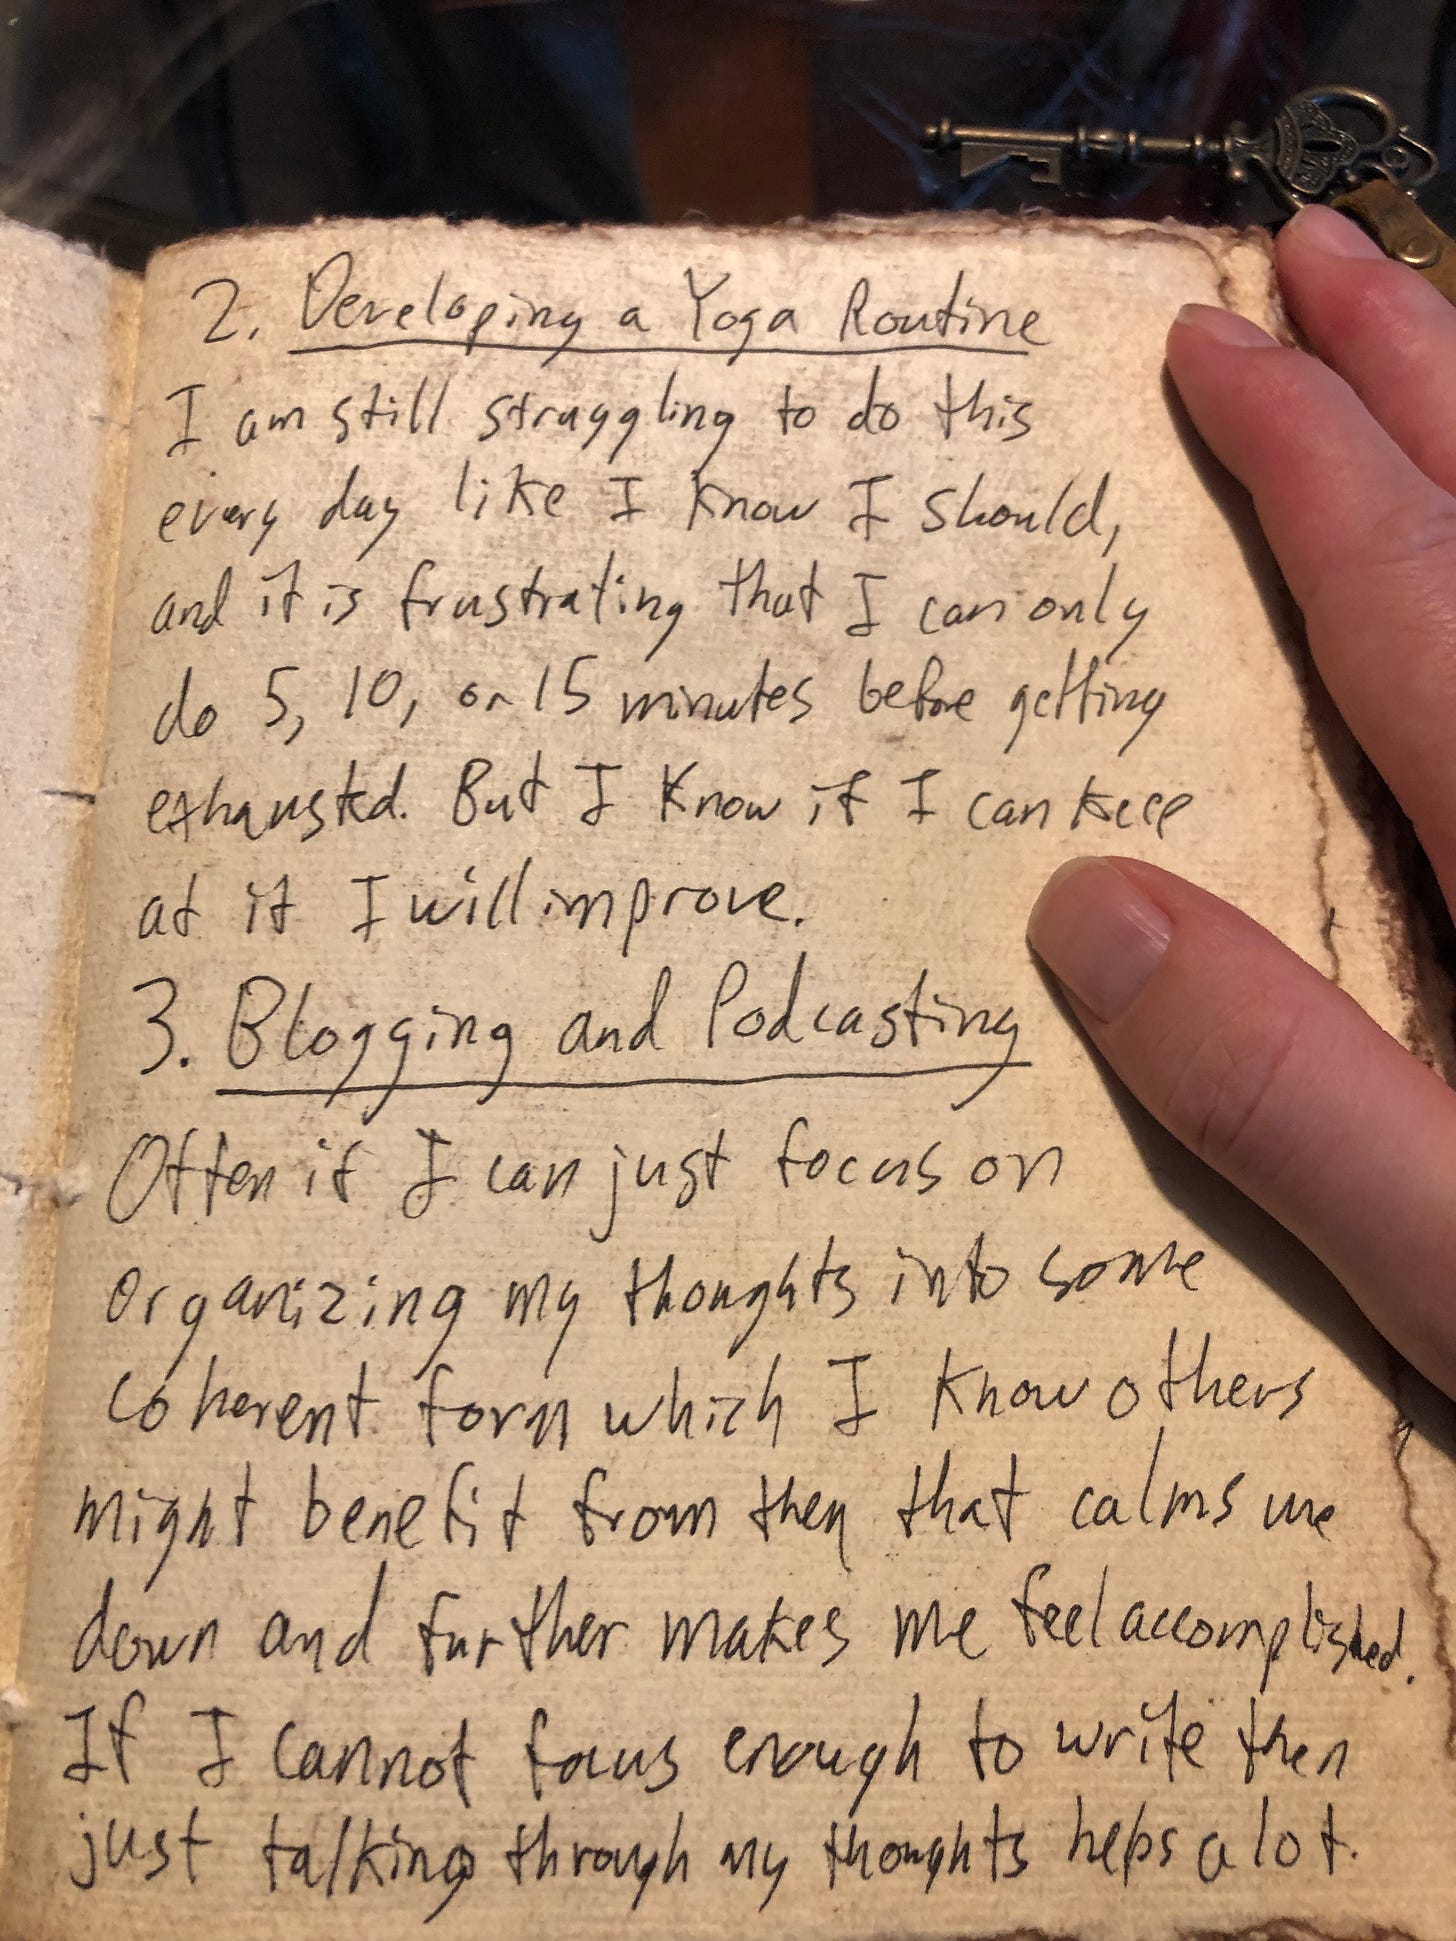 2. Developing a Yoga Routine
I am still struggling to do this
every day like I know I should,
and it is frustrating that I can only
do 5, 10, or 15 minutes before getting
exhausted. But I know if I can keep
at it I will improve.
3. Blogging and Podcasting
Often if I can just focus on
organizing my thoughts into some
coherent form which I know others
might benefit from then that calms me
down and further makes me feel accomplished.
If I cannot focus enough to write then
just talking through my thoughts helps a lot.